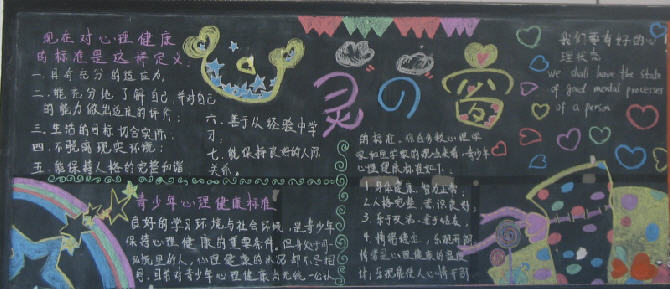 现在对心理健康
的标准是这样定义:
一.具有充分的适应力;
二.能充分地了解自己,并对自己
的能力做出适度的评价;
三.生活的目标切合实际;
四.不脱离现实环境;
五.能保持人格的完整和谐
六.善于从经验中学
习;
七.能保持良好的人际
关系;
灵の窗
我们要有好的心
理状态
we shall have the state
of good mental processes
of a person
青少年心理健康标准
良好的学习环境与社会环境,是青少年
保持心理健康的重要条件,但
的人,心理健康的状况却不尽相
同,目前对青少年心理健康尚无统一公认
的标准。
心理健康标准如下:
1.身体健康,智力正常;
2.人格完整,意识良好;
3.善于交友,
4.情绪稳定,乐观开朗